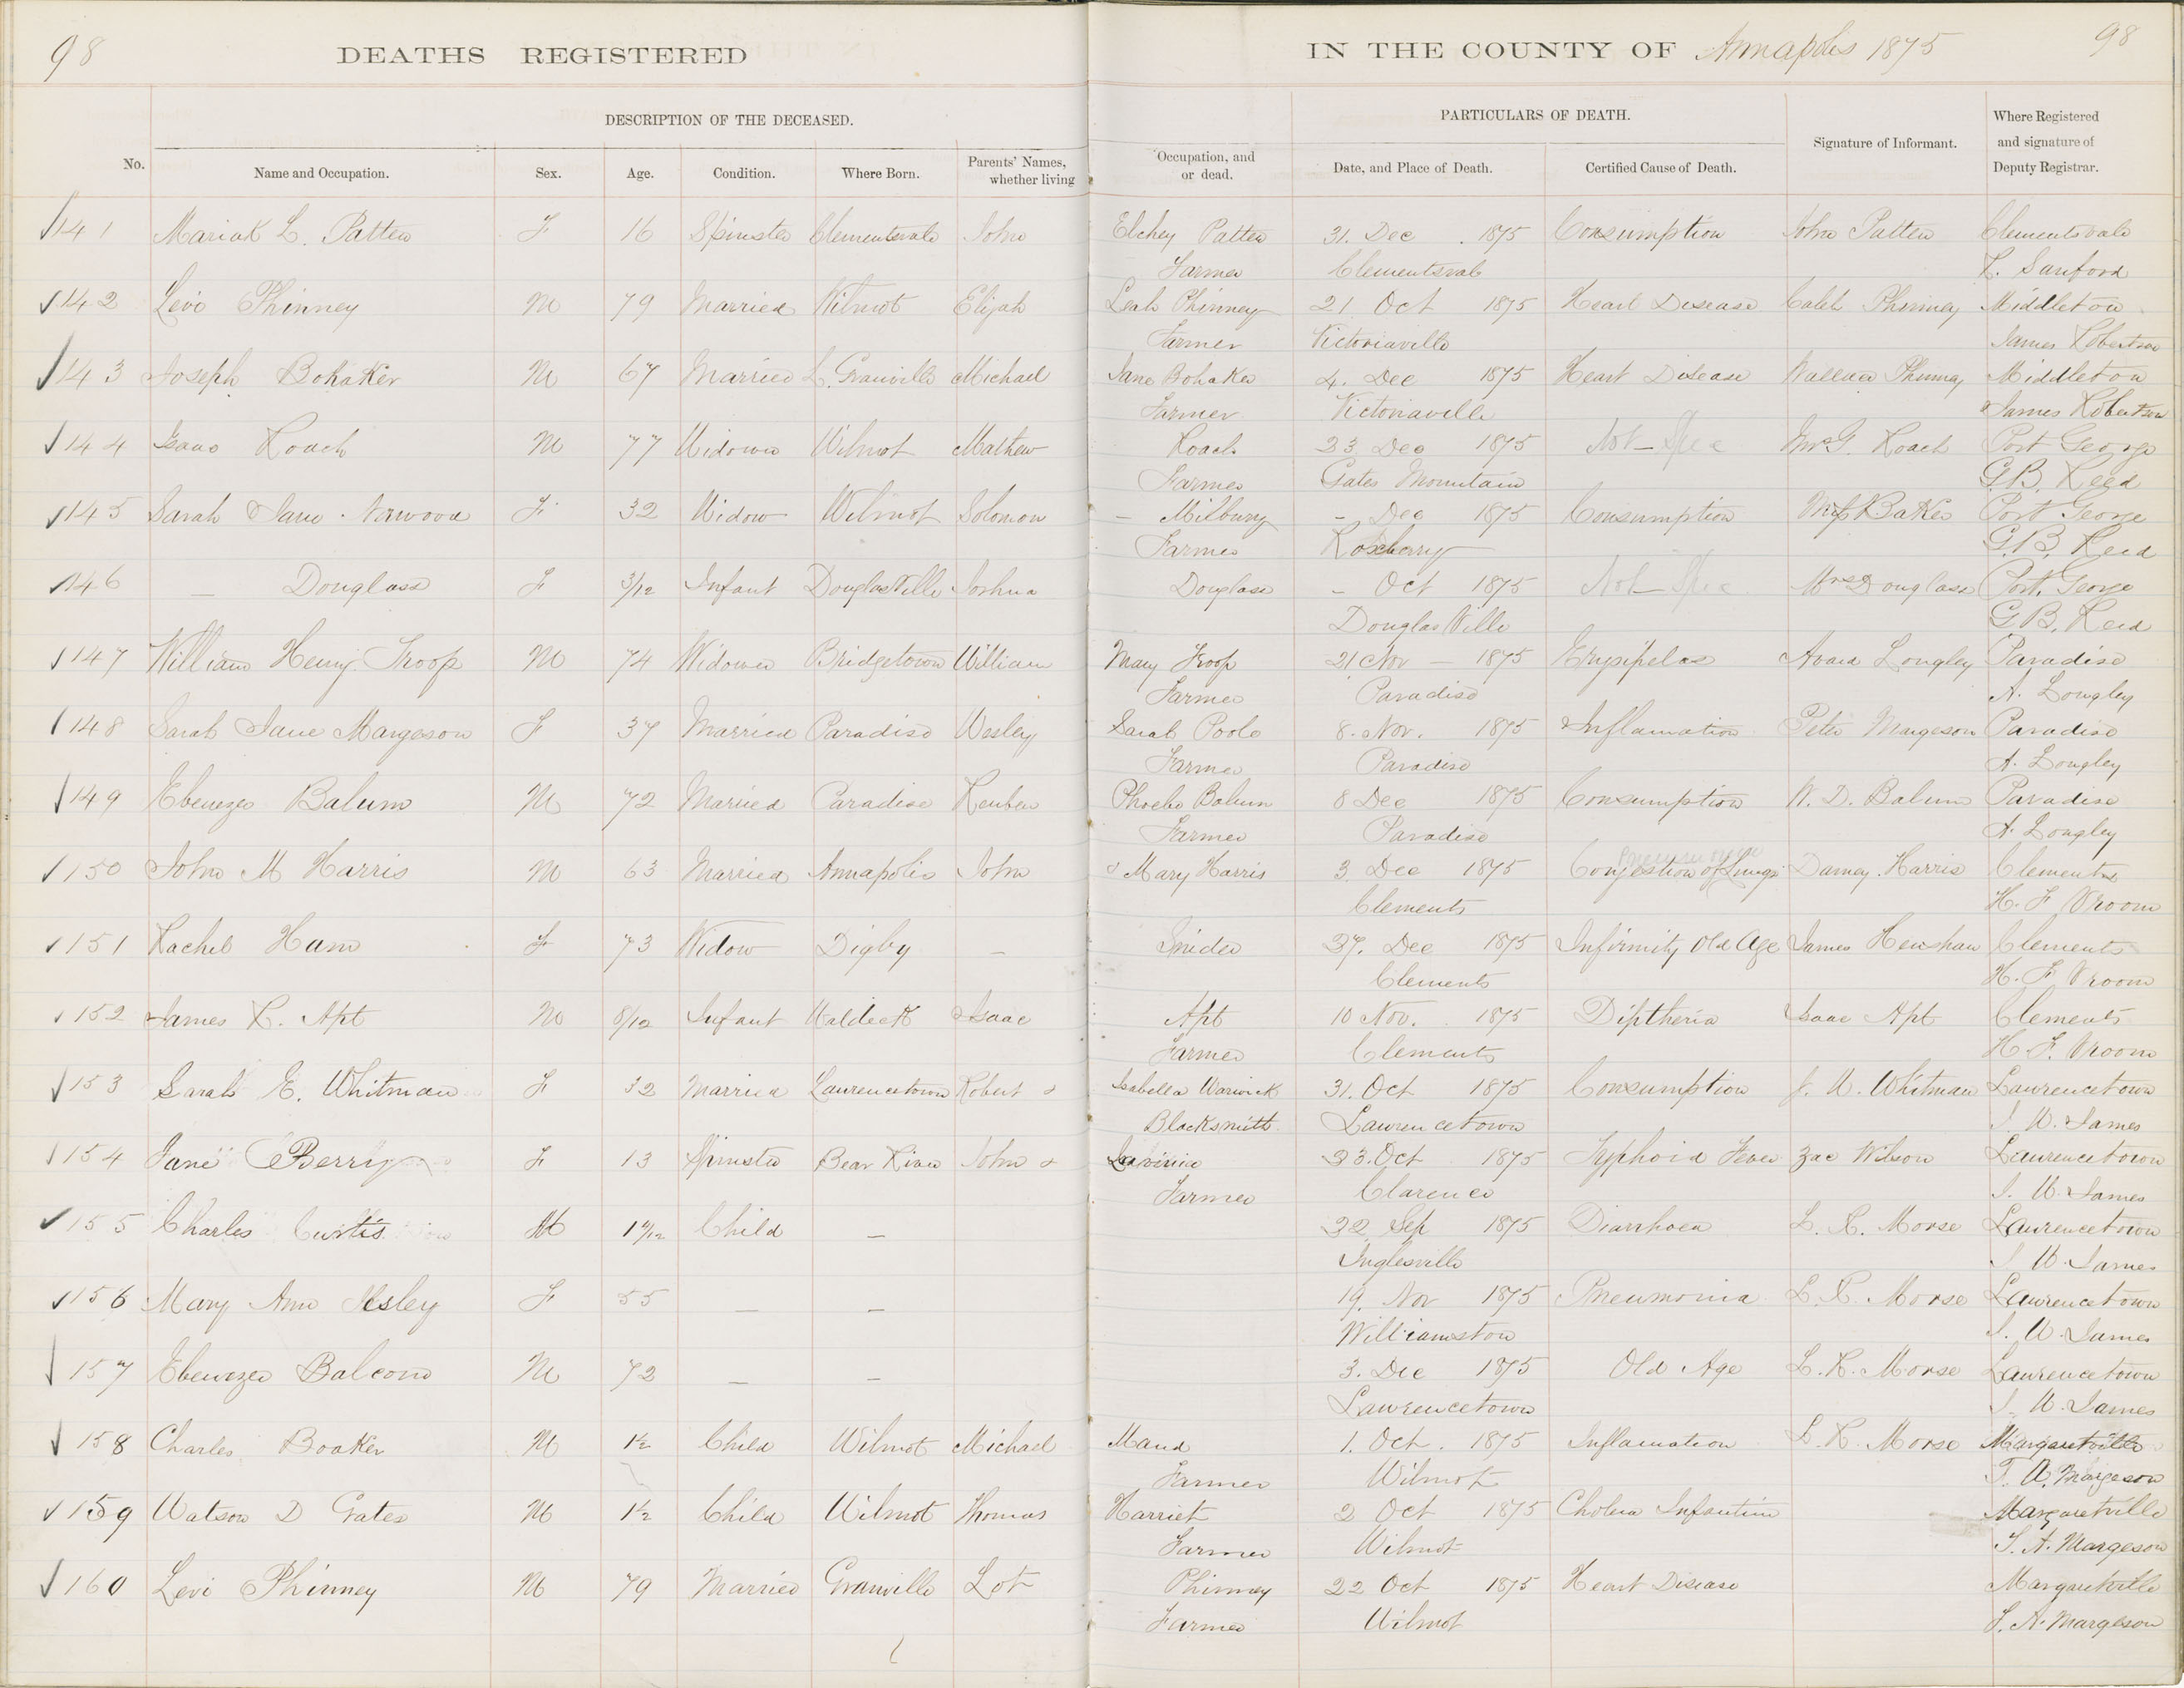 98
DEATHS REGISTERED
IN THE COUNTY OF Annapolis 1875
98
DESCRIPTION OF THE DECEASED.
PARTICULARS OF DEATH.
No.
Name and Occupation.
Sex.
Age.
Condition.
Where Born.
Parents' Names,
whether living
Occupation, and
or dead.
Date, and Place of Death.
Certified Cause of Death.
Signature of Informant.
Where Registered
and signature of
Deputy Registrar.
141 L. Patten F 16 Spinster Clementsvale John Elchey Patten 31. Dec. 1875 Consumption John Patten Clementsvale
Farmer Clementsval Sanford
142 Levi Phinney M 79 Married Wilmot Elijah Leah Phinney 21 Oct 1875 Heart Disease Caleb Phinney Middleton
Farmer Victoriaville James Robertson
143 Joseph Bohaker M 67 Married L. Granville Michael Jane Bohaker 4. Dec 1875 Heart Disease Wallace Phinney Middleton
Farmer Victoriaville James Robertson
144 Isaac Roach M 77 Widower Wilmot Mathew Roach 23 Dec 1875 Not Spec Roach Port George
Farmer Gates Mountain G.B. Reed
145 Sarah Jane Norwood F 32 Widow Wilmot Solomon – Milbury – Dec 1875 Consumption Baker Port George
Farmer Roxberry G.B. Reed
146 — Douglass F 3/12 Infant DouglasVille Joshua Douglass – Oct 1875 Not Spec Mrs Douglass Port George
Douglas Ville G.B. Reed
147 William Henry Troop M 74 Widower Bridgetown William Mary Troop 21 Nov – 1875 Erysipelas Avard Longley Paradise
Farmer Paradise A. Longley
148 Sarah Jane Margeson F 37 Married Paradise Wesley Sarah Poole 8. Nov. 1875 Inflamation Peter Margeson Paradise
Farmer Paradise A. Longley
149 Ebenezer Balum M 72 Married Paradise Reuben Phoebe Balum 8 Dec 1875 Consumption W. D. Balum Paradise
Farmer Paradise A. Longley
150 John M Harris M 63 Married Annapolis John & Mary Harris 3 Dec 1875 Congestion of Lungs Harris Clements
Clements H. F Vroom
151 Rachel Ham F 73 Widow Digby – Snider 27. Dec 1875 Infirmity Old Age James Henshaw Clements
Clements H. F Vroom
152 James R. Apt M 8/12 Infant Waldeck Isaac Apt 10 Nov. 1875 Diptheria Isaac Apt Clements
Farmer Clements H F. Vroom
153 Sarah E. Whitman F 32 Married Laurencetown Robert & Isabella Warwick 31. Oct 1875 Consumption J. W. Whitman Laurencetown
Blacksmith Laurencetown J. W. James
154 Jane Berry F 13 Spinster Bear River John & Lavinia 23. Oct 1875 Typhoid Fever Zac Wilson Laurencetown
Farmer Clarence J. W. James
155 Charles Curtis M Child – 22 Sep 1875 Diarrhoea L. R. Morse Laurencetown
Inglesville J. W. James
156 Mary Ann F 55 — – 19. Nov 1875 Pneumonia L. R. Morse Laurencetown
Williamston J. W. James
157 Ebenezer Balcom M 72 — – 3. Dec 1875 Old Age L. R. Morse Laurencetown
Laurencetown J. W. James
158 Charles Boaker M 1½ Child Wilmot Michael 1. Oct. 1875 Inflamation L. R. Morse Margaretville
Farmer Wilmot Margeson
159 Watson D Gates M 1½ Child Wilmot Thomas Harriet 2 Oct 1875 Cholera Infantum Margaretville
Farmer Wilmot Margeson
160 Levi Phinney M 79 Married Granville Lot Phinney 22 Oct 1875 Heart Disease Margaretville
Farmer Wilmot Margeson